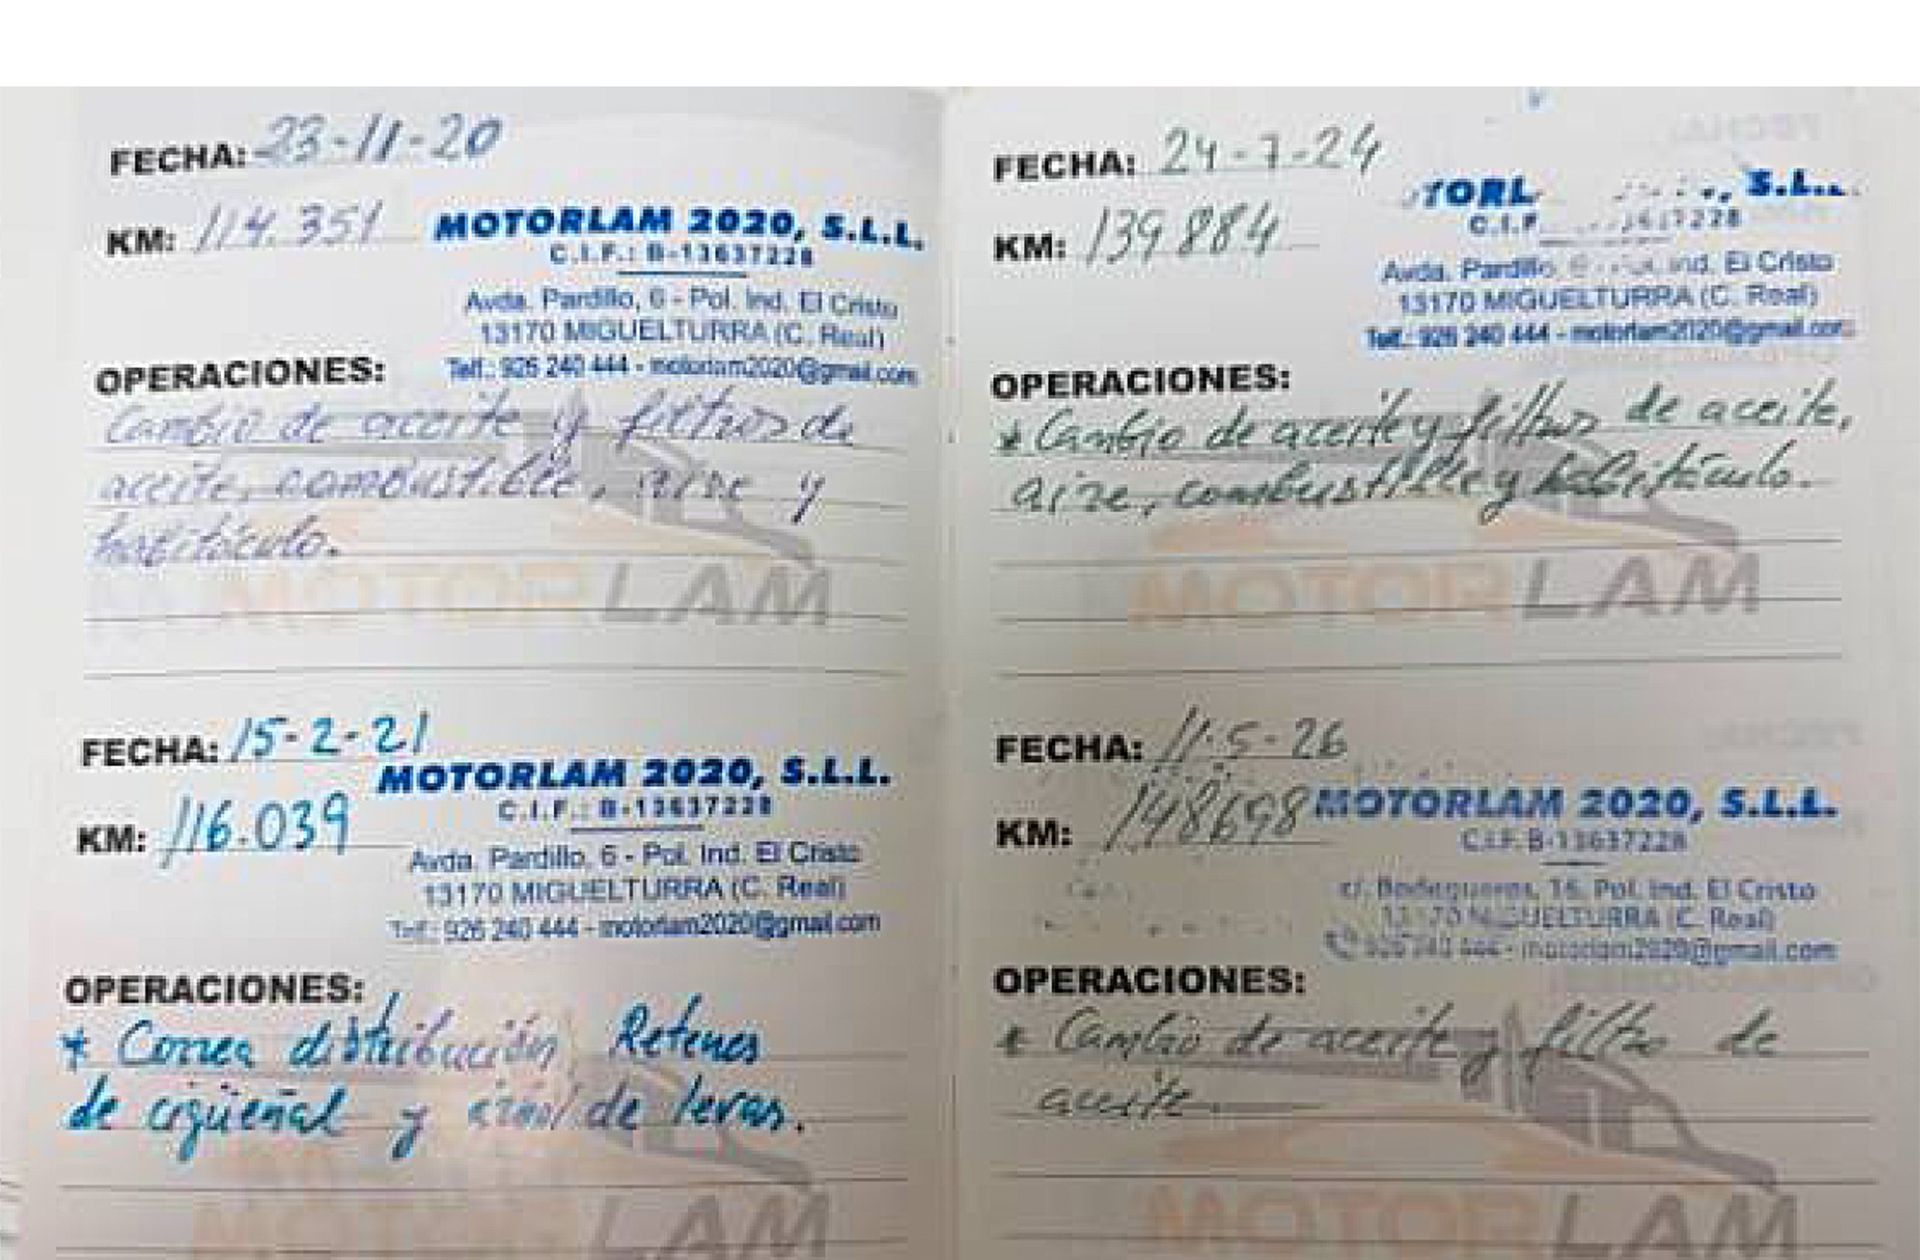 FECHA: 23-11-20
KM: 114.351
MOTORLAM 2020, S.L.L.
C.I.F.: B-13637228
Avda. Pardillo, 6 - Pol. Ind. El Cristo
13170 MIGUELTURRA (C. Real)
Telf.: 926 240 444 - motorlam2020@gmail.com
OPERACIONES:
Cambio de aceite y filtros de
aceite, combustible, aire y
habitáculo.
MOTORLAM
FECHA: 15-2-21
KM: 116.039
MOTORLAM 2020, S.L.L.
C.I.F.: B-13637228
Avda. Pardillo, 6 - Pol. Ind. El Cristo
13170 MIGUELTURRA (C. Real)
Telf.: 926 240 444 - motorlam2020@gmail.com
OPERACIONES:
* Correa distribución, Retenes
de cigüeñal y de levas.
MOTORLAM
FECHA: 24-7-24
KM: 139884
TORL S.L.L.
C.I.F. 3637228
Avda. Pardillo, 6 - Pol. Ind. El Cristo
13170 MIGUELTURRA (C. Real)
Telf.: 926 240 444 - motorlam2020@gmail.com
OPERACIONES:
* Cambio de aceite y filtros de aceite,
aire, combustible y habitáculo.
MOTORLAM
FECHA: 11-5-26
KM: 148698
MOTORLAM 2020, S.L.L.
C.I.F. B-13637228
c/. Bodegueros, 16. Pol. Ind. El Cristo
13170 MIGUELTURRA (C. Real)
926 240 444 - motorlam2020@gmail.com
OPERACIONES:
* Cambio de aceite y filtro de
aceite.
MOTORLAM